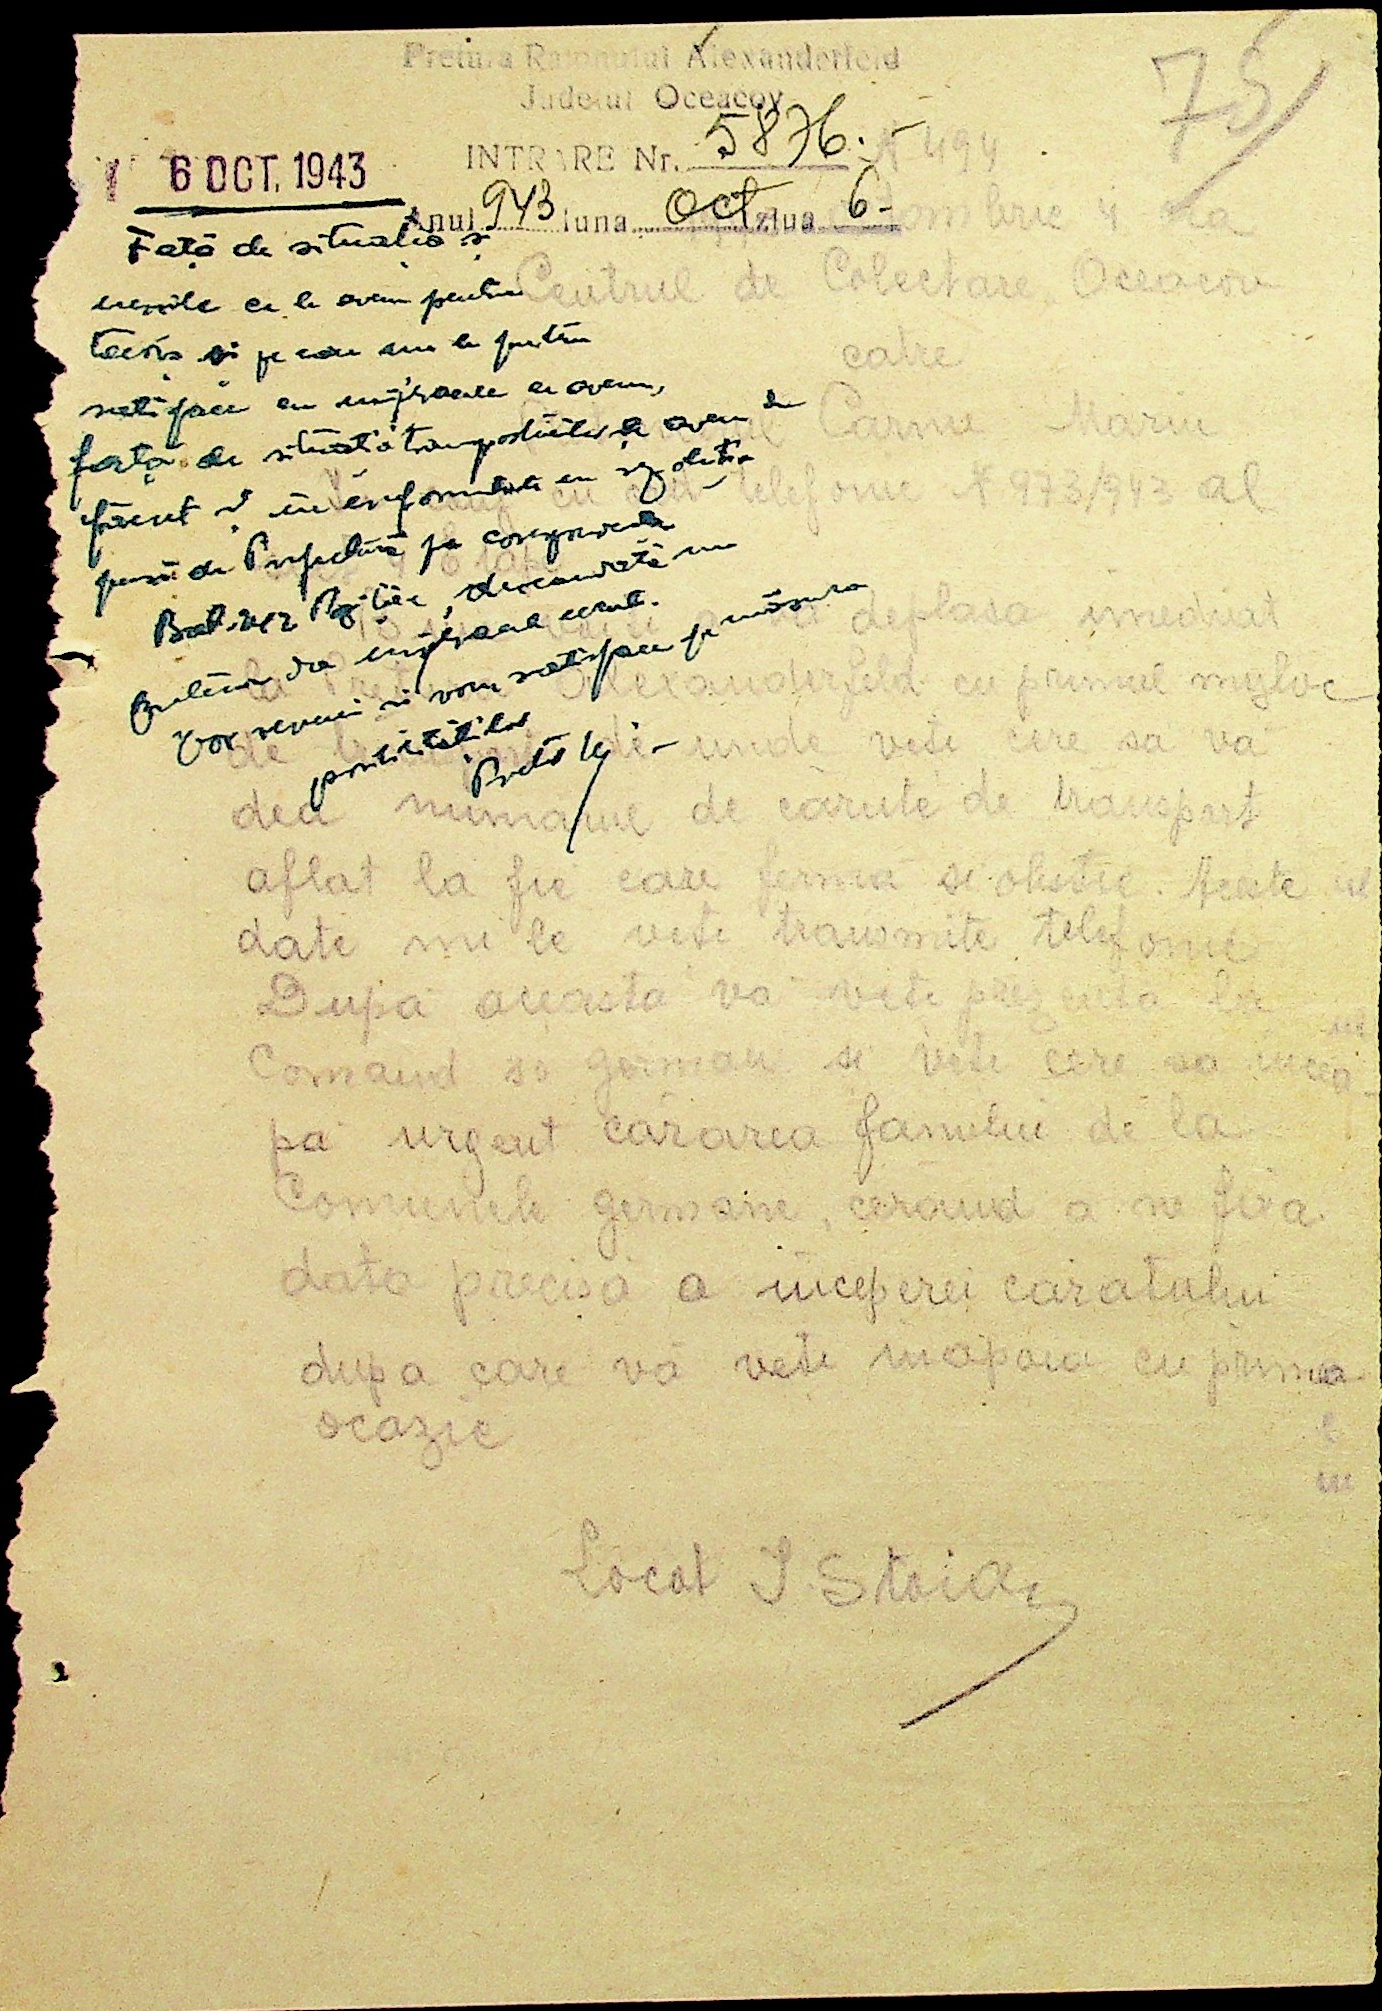 75
Pretura Raionului Alexanderfeld
Judetul Oceacov
INTRARE Nr. 5876.
Anul 943 luna Oct ziua 6
6 OCT. 1943
№ 494
Octombrie 4
Centrul de Colectare Oceacov
catre
Carme Marin
telefonic № 973/943 al
deplasa imediat
la Pretura Alexanderfeld cu primul mijloc
de unde veti cere sa va
dea numarul de carute de transport
aflat la fie care ferma si obstie. Aceste
date mi le veti transmite telefonic
Dupa aceasta va veti prezenta la
Comand so german si veti cere sa incea
pa urgent cararea fanului de la
Comunele germane, cerand a ne fixa
data precisa a inceperei caratului
dupa care va veti inapoia cu prima
ocazie
Locot I. Stoian
Față de situatia și
ce le avem pentru
si pe care nu le putem
satisface cu mijloacele ce avem,
fața de situatia transporturilor ce avem de
făcut și in conformitate cu rezolutia
pusă de Prefectură pe
deocamdată nu
putem da mijloacele cerute.
Vor reveni si vom satisface pe măsura
posibilităților
Pretor